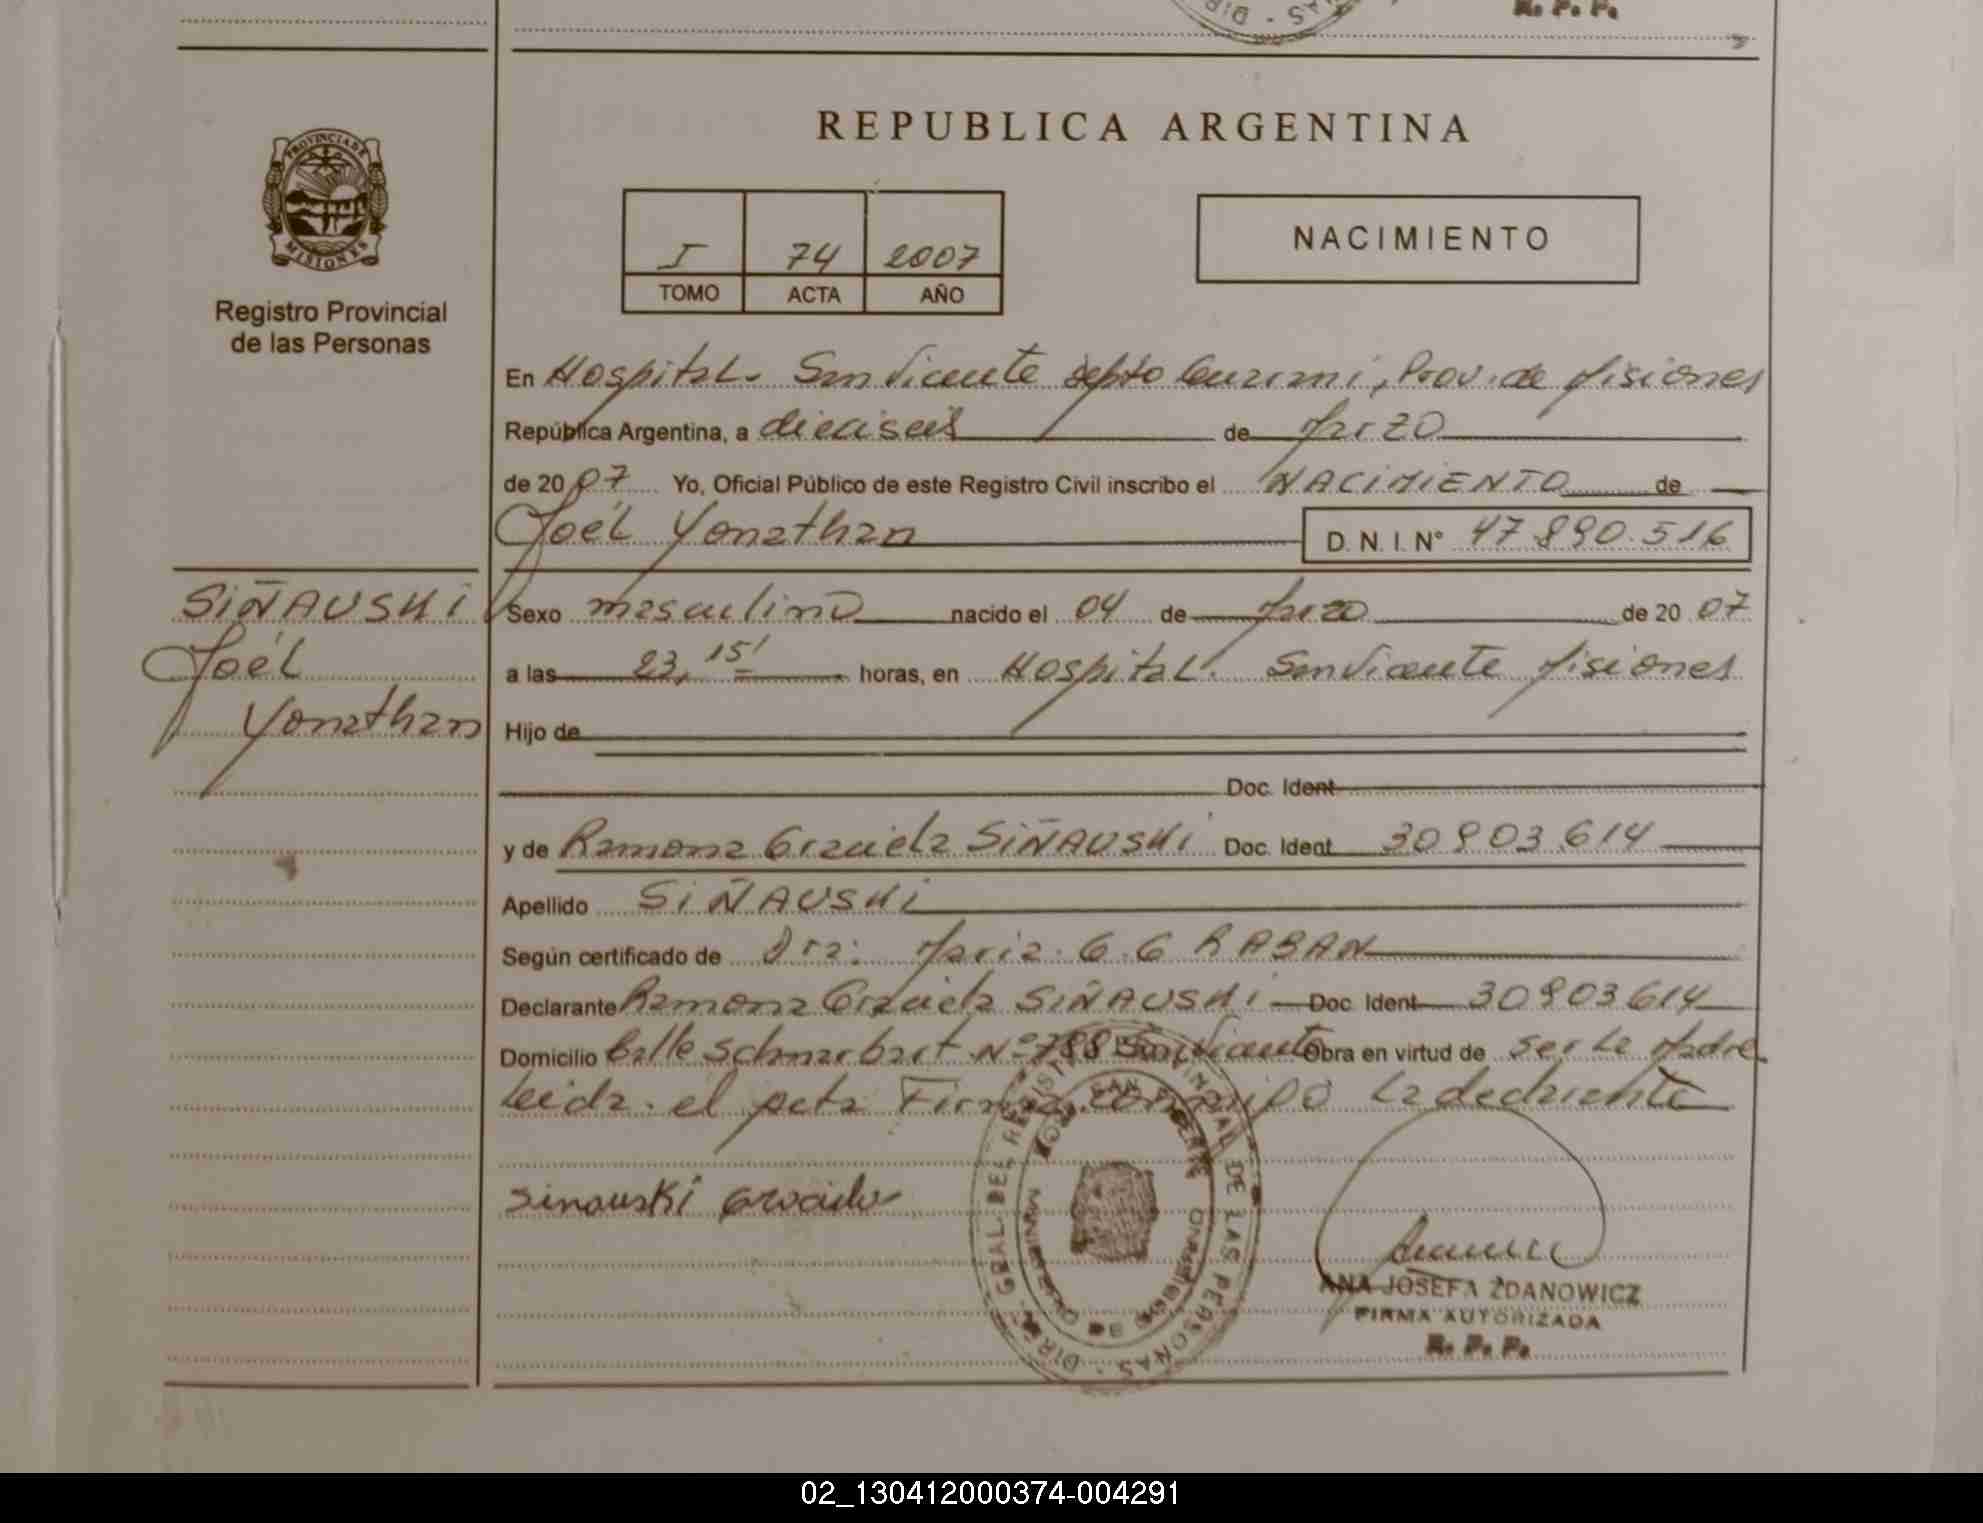 R. P. P.
REPUBLICA ARGENTINA
PROVINCIA DE
MISIONES
Registro Provincial
de las Personas
I 74 2007
TOMO ACTA AÑO
NACIMIENTO
En Hospital. San Vicente depto Guarani, Prov. de Misiones
República Argentina, a dieciseis de Marzo
de 2007 Yo, Oficial Público de este Registro Civil inscribo el NACIMIENTO de
Joél Yonathan D. N. I. N° 47.890.516
SIÑAUSKI
Joél
Yonathan
Sexo masculino nacido el 04 de Marzo de 2007
a las 23,15' horas, en Hospital. San Vicente Misiones
Hijo de
Doc. Ident.
y de Ramona Graciela SIÑAUSKI Doc. Ident. 30903614
Apellido SIÑAUSKI
Según certificado de Dra: Maria. G. G RABAN
Declarante Ramona Graciela SIÑAUSKI Doc. Ident. 30903614
Domicilio Calle Schmarbart N° 788 San Vicente Obra en virtud de ser la Madre
Leida. el acta Firma conmigo La declarante
Sinauski Graciela
DIR. GRAL. DEL REGISTRO PROVINCIAL DE LAS PERSONAS
SAN VICENTE
MISIONES
ANA JOSEFA ZDANOWICZ
FIRMA AUTORIZADA
R. P. P.
02_130412000374-004291